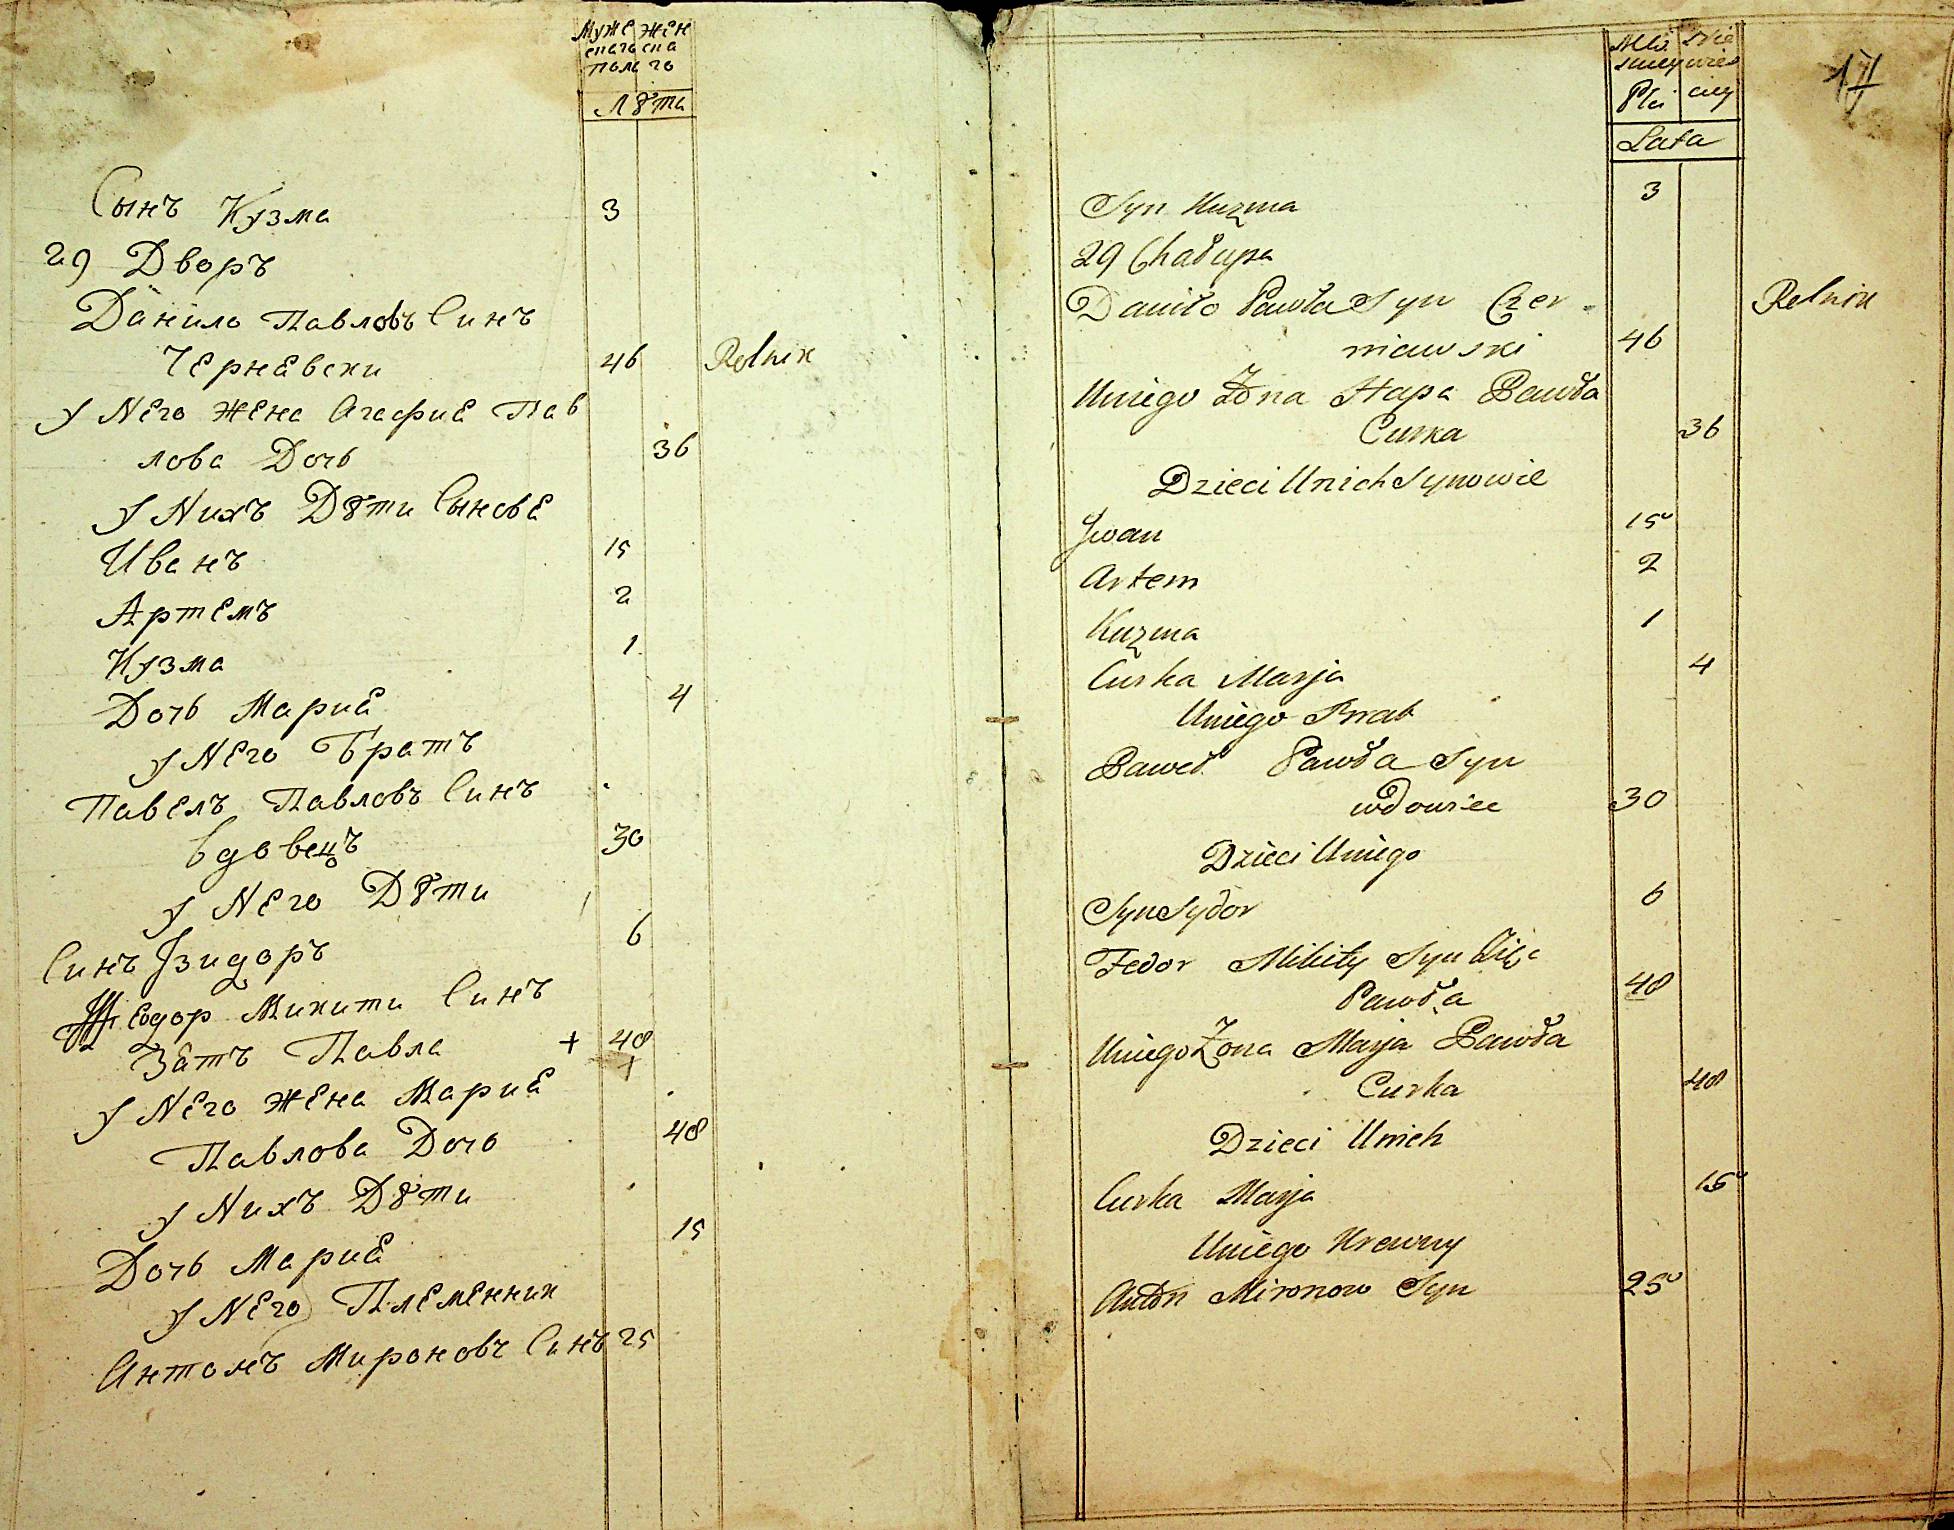 Муже жен
ска го ска
пола го
Лѣта
Сынъ Кузма 3
29 Дворъ
Данило Павловъ Синъ
Чернавски 46 Rolnik
у Него жена Агафиа Пав
лова Дочь 36
у Нихъ Дѣти Сынове
Иванъ 15
Артемъ 2
Кузма 1
Дочь Мариа 4
у Него Братъ
Павелъ Павловъ Синъ
вдовецъ 30
у Него Дѣти
Синъ Ізидоръ 6
Федор Микити Синъ
Затъ Павла + 48
+
у Него жена Мариа
Павлова Дочь 48
у Нихъ Дѣти
Дочь Мариа 15
у Него Племенник
Антонъ Мироновъ Синъ 25
17
Płci
Lata
Syn Kuzma 3
29 Chałupa
Daniło Pawła Syn Czer-
niawski 46 Rolnik
Uniego Żona Hapa Pawła
Curka 36
Dzieci Unich Synowie
Jwan 15
Artem 2
Kuzma 1
Curka Marja 4
Uniego Brat
Paweł Pawła Syn
wdowiec 30
Dzieci Uniego
Syn Sydor 6
Fedor Mikity Syn Zięć
Pawła 48
Uniego Żona Marja Pawła
Curka 48
Dzieci Unich
Curka Marja 15
Uniego Krewny
Anton Mironow Syn 25